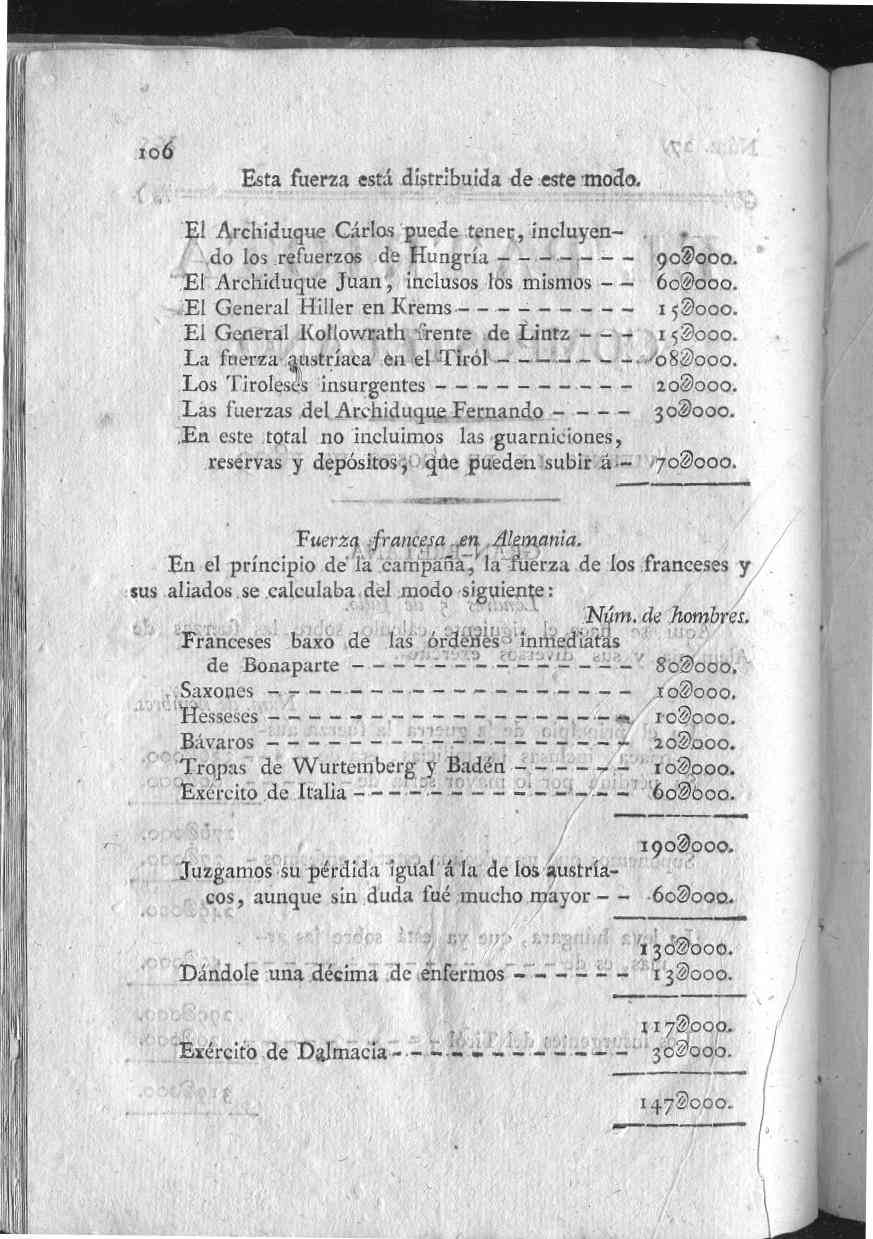 106
Esta fuerza está distribuida de este modo.
El Archiduque Cárlos puede tener, incluyen-
do los refuerzos de Hungría - - - - - - - 90@000.
El Archiduque Juan, inclusos los mismos - - 60@000.
El General Hiller en Krems - - - - - - - - - 15@000.
El General Kollowrath frente de Lintz - - - 15@000.
La fuerza austríaca en el Tiról - - - - - - - 08@000.
Los Tiroleses insurgentes - - - - - - - - - - 20@000.
Las fuerzas del Archiduque Fernando - - - - 30@000.
En este total no incluimos las guarniciones,
reservas y depósitos, que pueden subir á - 70@000.
Fuerza francesa en Alemania.
En el príncipio de la campaña, la fuerza de los franceses y
sus aliados se calculaba del modo siguiente:
Núm. de hombres.
Franceses baxo de las órdenes inmediatas
de Bonaparte - - - - - - - - - - - - - - 80@000.
Saxones - - - - - - - - - - - - - - - - - - 10@000.
Hesseses - - - - - - - - - - - - - - - - - - 10@000.
Bávaros - - - - - - - - - - - - - - - - - - 20@000.
Tropas de Wurtemberg y Badén - - - - - - 10@000.
Exército de Italia - - - - - - - - - - - - - - 60@000.
190@000.
Juzgamos su pérdida igual á la de los austría-
cos, aunque sin duda fué mucho mayor - - 60@000.
130@000.
Dándole una décima de enfermos - - - - - - 13@000.
117@000.
Exército de Dalmacia - - - - - - - - - - - - 30@000.
147@000.